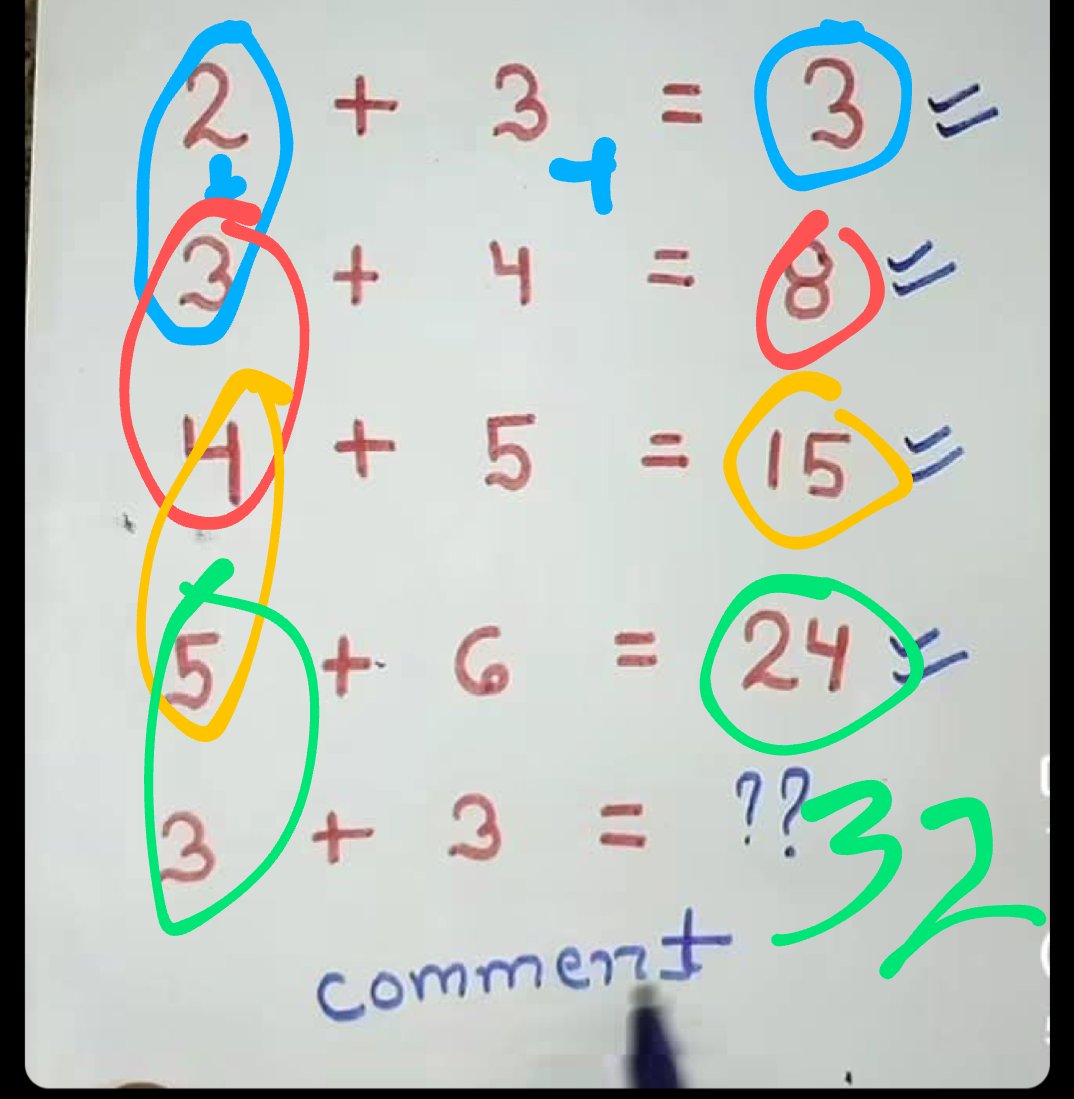 2 + 3 = 3
3 + 4 = 8
4 + 5 = 15
5 + 6 = 24
3 + 3 = ?? 32
comment